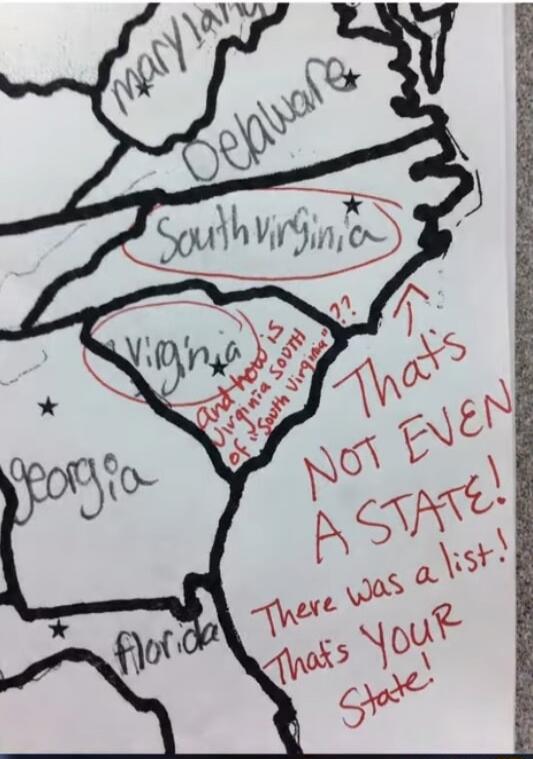 maryland
Delaware
South virginia
Virginia
and how is
Virginia SOUTH
of "South Virginia" ??
That's
NOT EVEN
A STATE!
There was a list!
That's YOUR
State!
georgia
florida